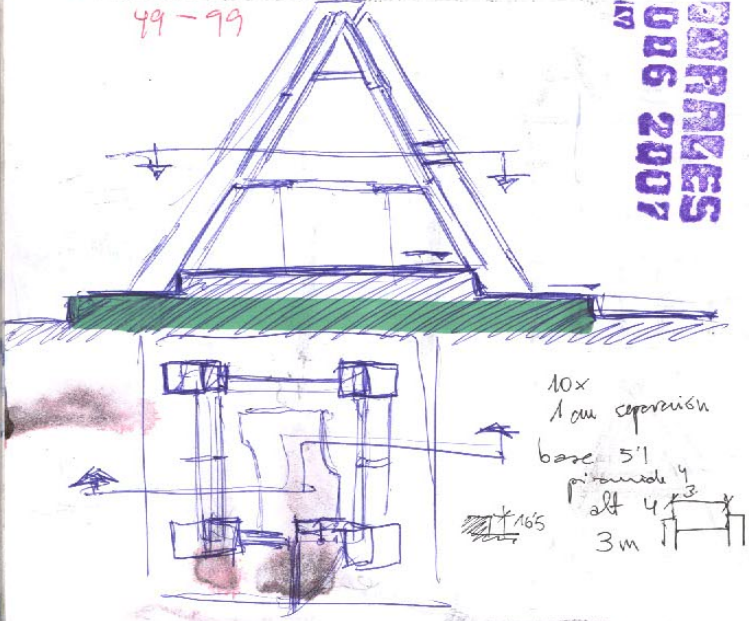 49 - 99
MORALES
006 2007
10x
1 cm separación
base 5'1
piramide 4
alt 4
3
16'5
3 m